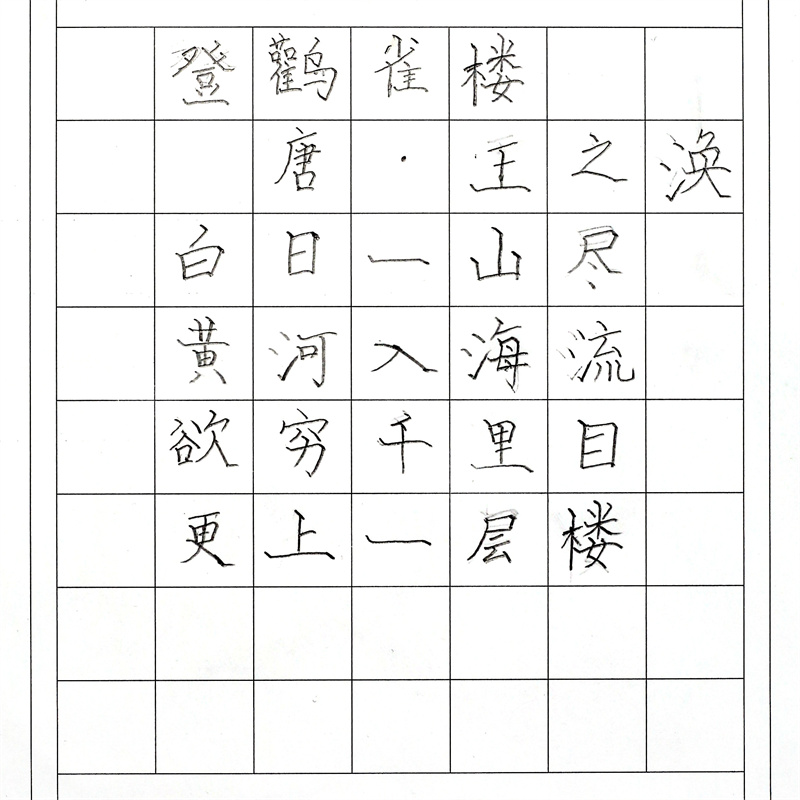 登鹳雀楼
唐·王之涣
白日一山尽
黄河入海流
欲穷千里目
更上一层楼